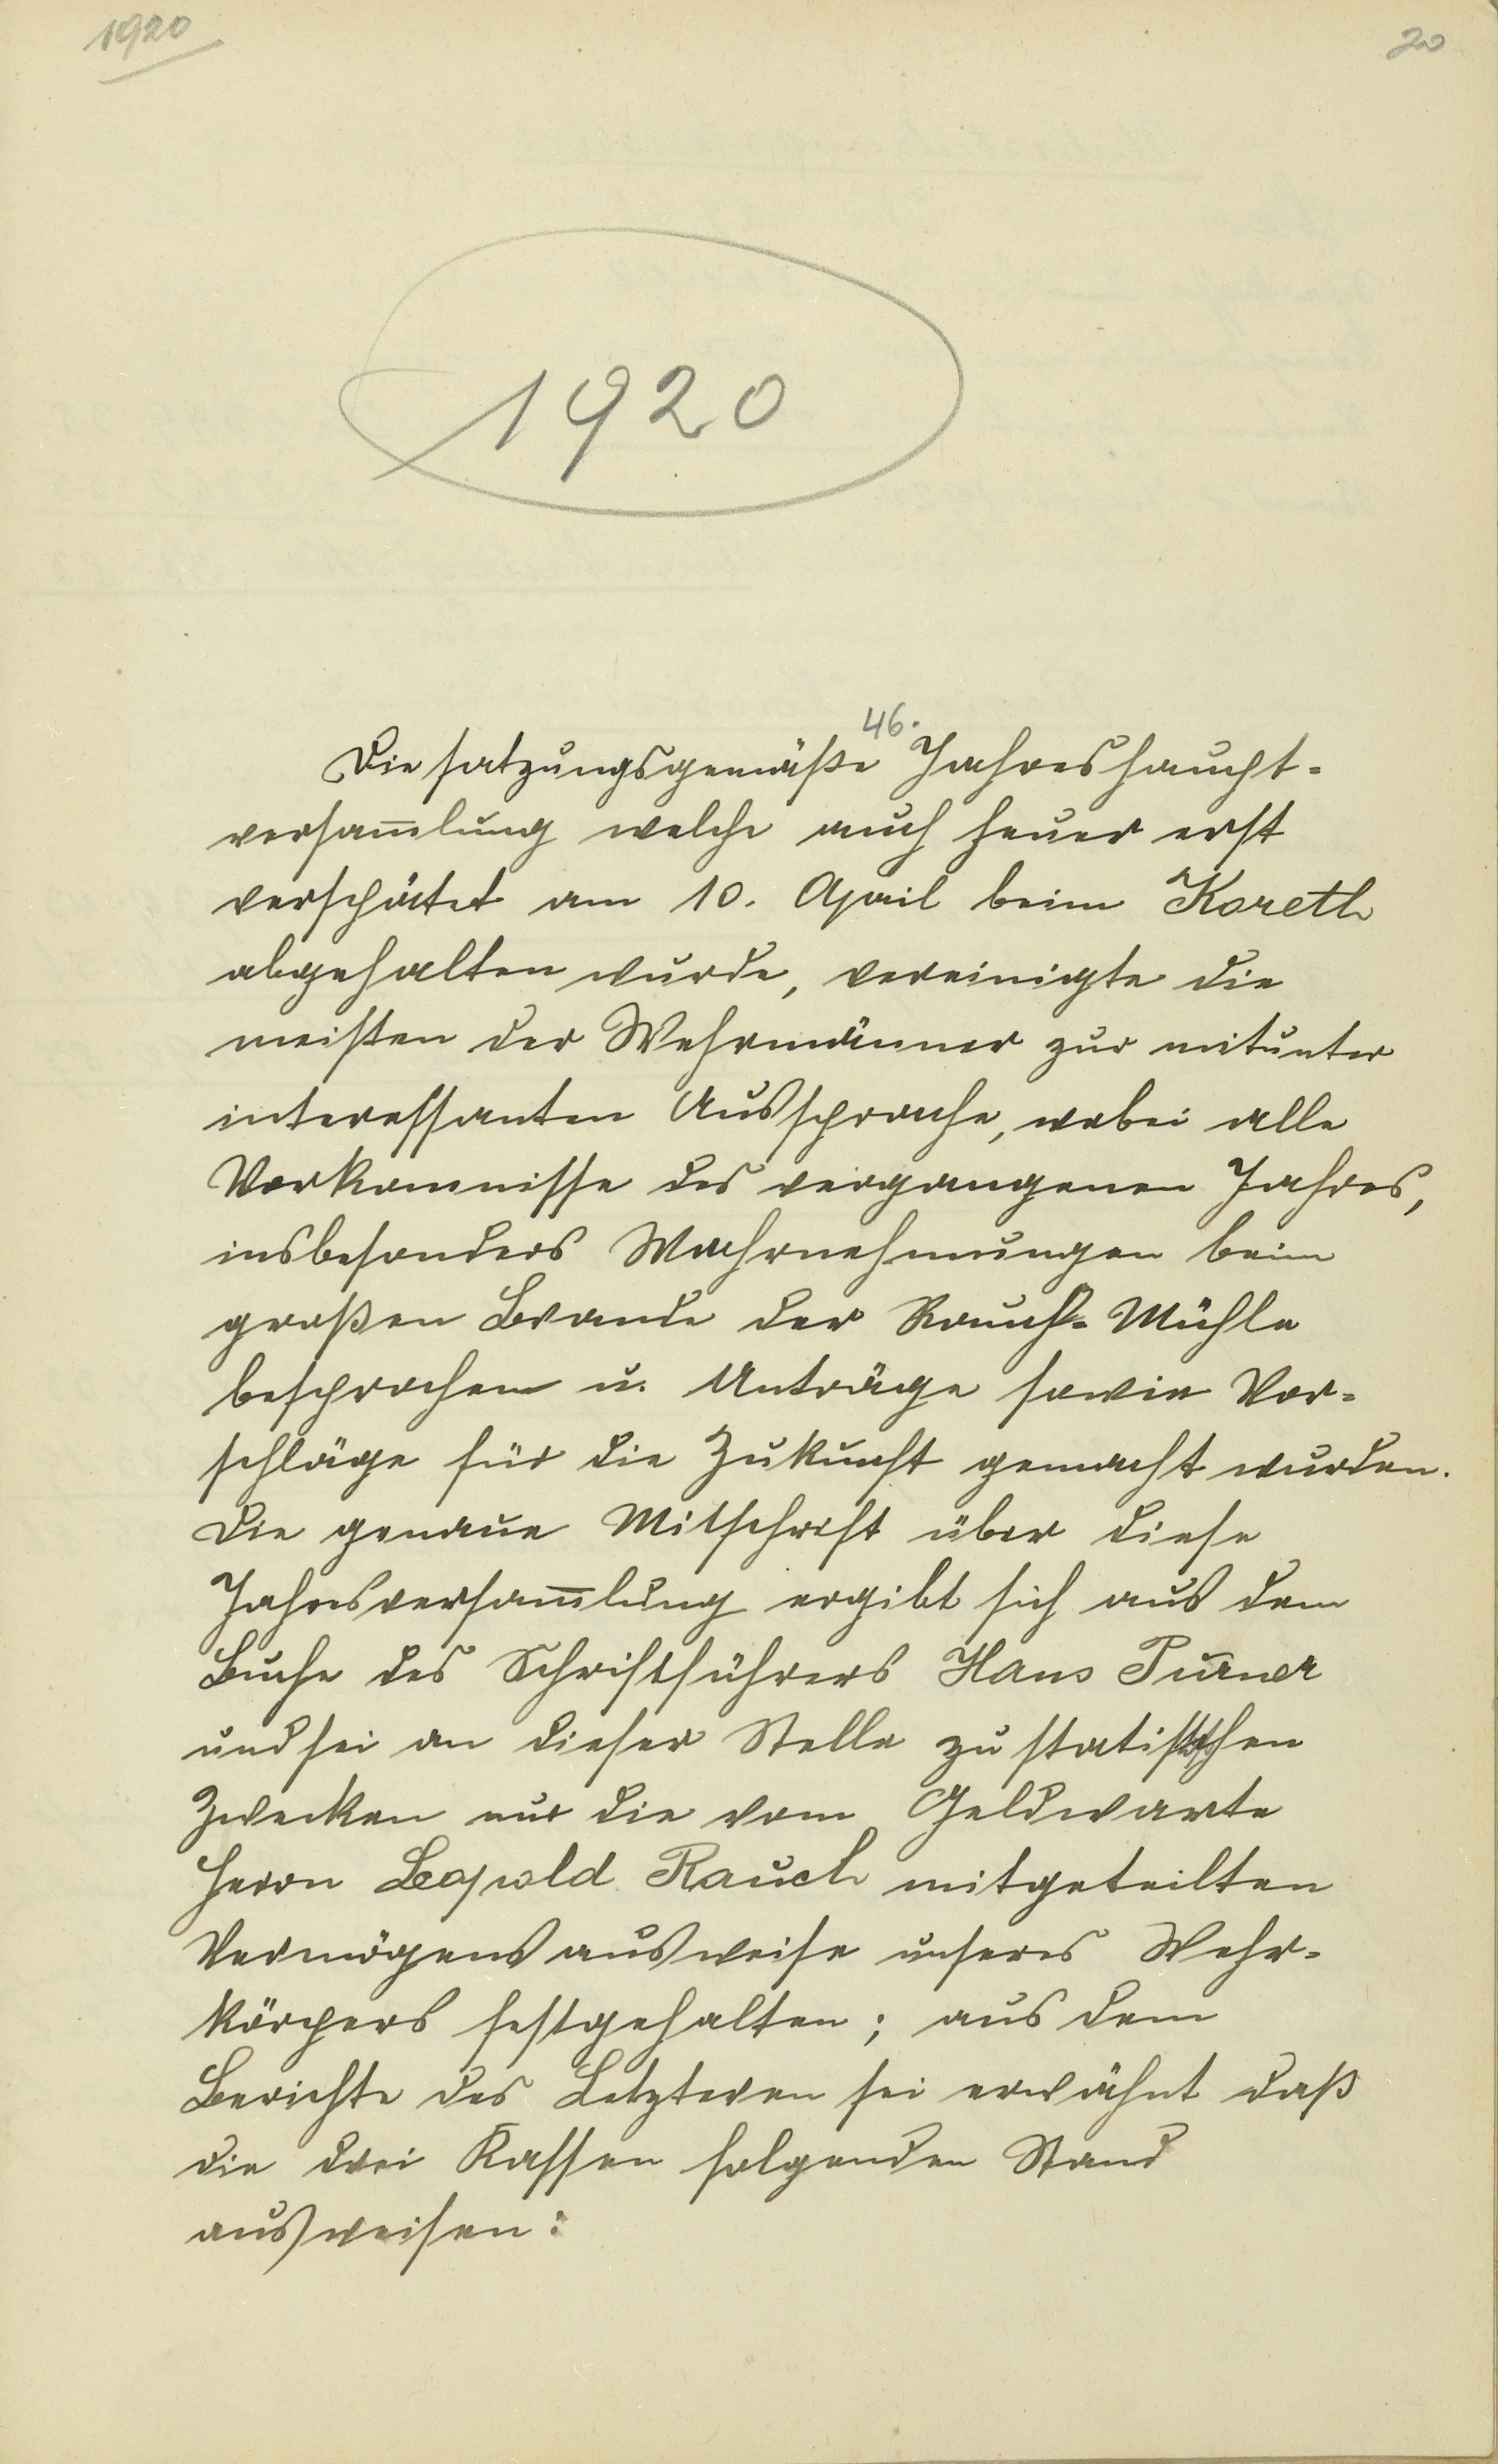 1920
20
1920
46.
Die satzungsgemäße Jahreshaupt-
versam̅lung welche auch heuer erst
verspätet am 10. April beim Koreth
abgehalten wurde, vereinigte die
meisten der Wehrmänner zur mitunter
interessanten Aussprache, wobei alle
Vorkomnisse des vergangenen Jahres,
insbesonders Wahrnehmungen beim
großen Brande der Rauch-Mühle
besprochen u. Anträge sowie Vor-
schläge für die Zukunft gemacht wurden.
Die genaue Mitschrift über diese
Jahresversam̅lung ergibt sich aus dem
Buche des Schriftführers Hans Purner
und sei an dieser Stelle zu statistischen
Zwecken nur die vom Geldwarte
Herrn Leopold Rauch mitgeteilten
Vermögensausweise unseres Wehr-
körpers festgehalten; aus dem
Berichte des Letzteren sei erwähnt daß
die drei Kassen folgenden Stand
ausweisen: